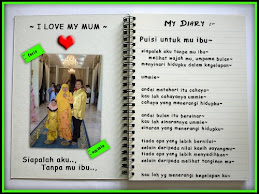 ~ I LOVE MY MUM ~
Siapalah aku..,
Tanpa mu ibu..,
My Diary :~
Puisi untuk mu ibu~
siapalah aku tanpa mu ibu~
melihat wajah mu, umpama bulan~
menyinari hidupku dalam kegelapan~
ummie~
andai matahari itu cahaya~
kau lah cahayanya ummie~
cahaya yang menerangi hidupku~
andai bulan itu bersinar~
kau lah sinarannya ummie~
sinaran yang menerangi hidupku~
tiada apa yang lebih bernilai~
selain daripada nilai kasih sayangmu~
tiada apa yang lebih bermakna~
selain daripada seikhlas tanganmu~
kau lah yg menerangi kegelapan